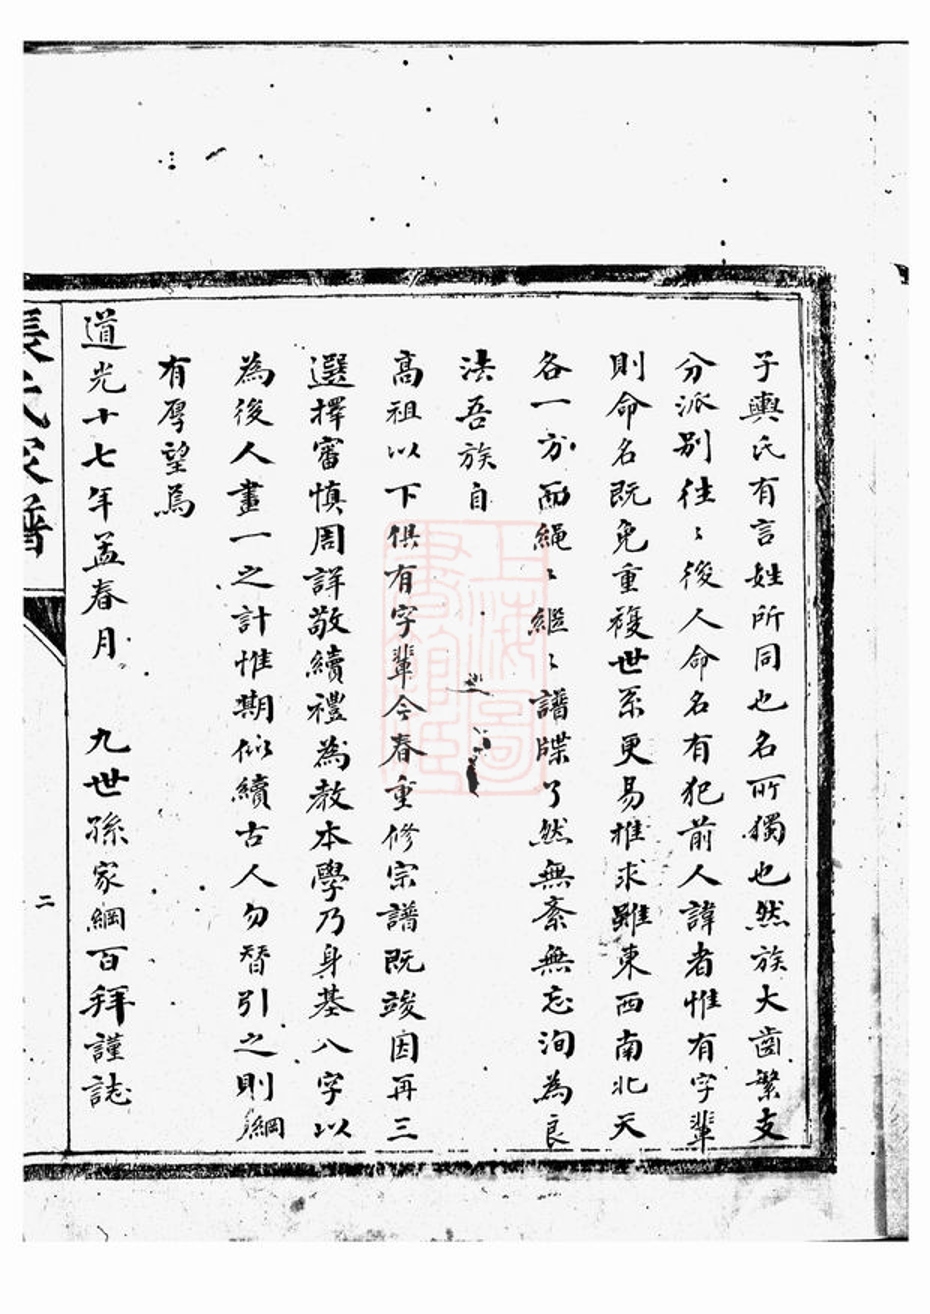 子輿氏有言姓所同也名所獨也然族大齒繁支
分派别往〻後人命名有犯前人諱者惟有字輩
則命名既免重複世系更易推求雖東西南北天
各一方而繩〻繼〻譜牒了然無紊無忘洵為良
法吾族自
高祖以下俱有字輩今春重修宗譜既竣因再三
選擇審慎周詳敬續禮為教本學乃身基八字以
為後人畫一之計惟期似續古人勿替引之則綱
有厚望焉
道光十七年孟春月 九世孫家綱百拜謹誌
張氏家譜
二
上海圖書館藏